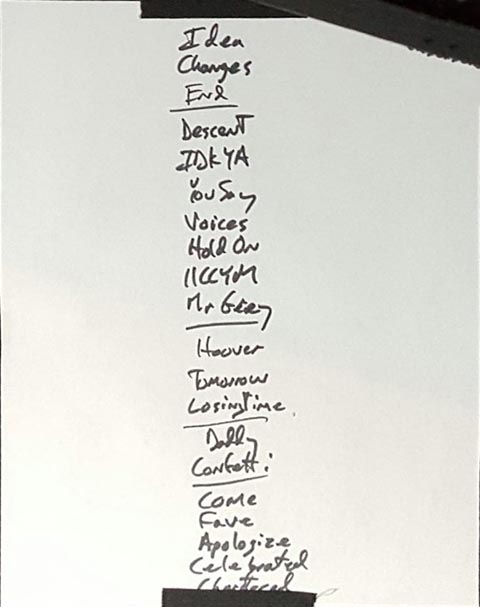 Idea
Changes
End
Descent
IDKYA
You Say
Voices
Hold On
IICCYM
Mr Grey
Hoover
Tomorrow
Losing Time
Daddy
Confetti
Come
Fave
Apologize
Celebrated
Chartered